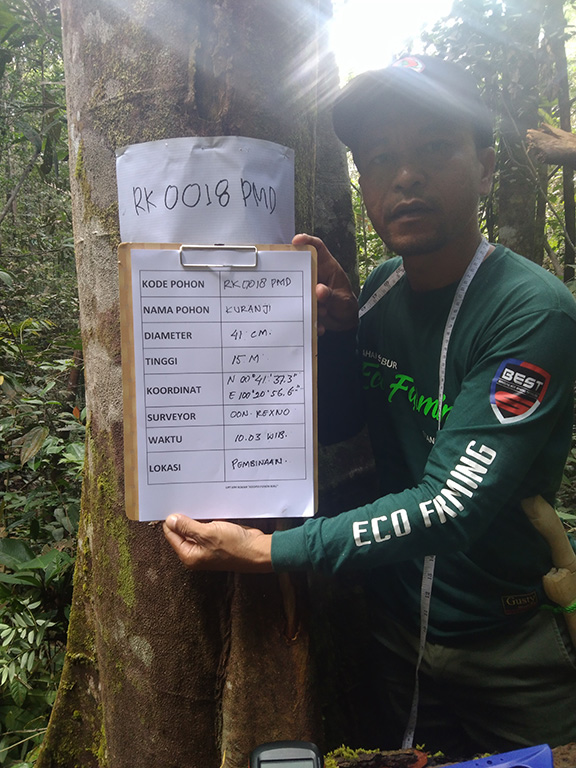 RK 0018 PMD
KODE POHON RK 0018 PMD
NAMA POHON KURANJI
DIAMETER 41 CM.
TINGGI 15 M
KOORDINAT N 00° 41' 37.3"
E 100° 20' 56.6"
SURVEYOR OON. REXNO
WAKTU 10.03 WIB.
LOKASI PEMBINAAN.
BUR
BEST
ECO FRMING
Gusty